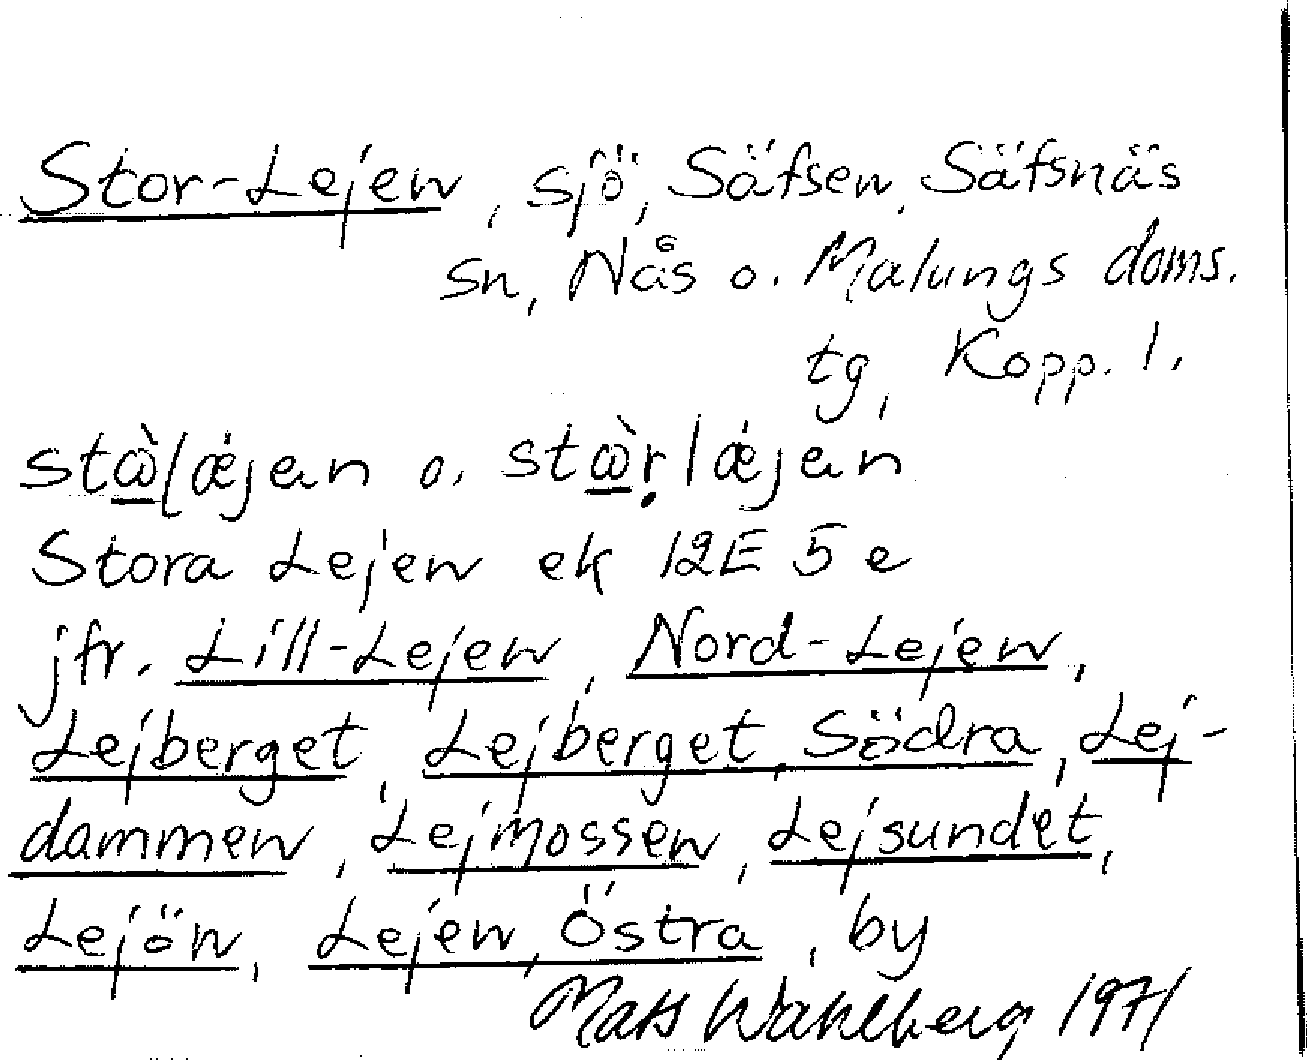 Stor-Lejen, sjö, Säfsen, Säfsnäs
sn, Nås o. Malungs doms.
tg, Kopp. l.
stὼ̲lǽjen o. stὼ̲ṛlǽjen
Stora Lejen ek 12E 5 e
jfr. Lill-Lejen, Nord-Lejen,
Lejberget, Lejberget, Södra, Lej-
dammen, Lejmossen, Lejsundet,
Lejön, Lejen, Östra, by
Mats Wahlberg 1971